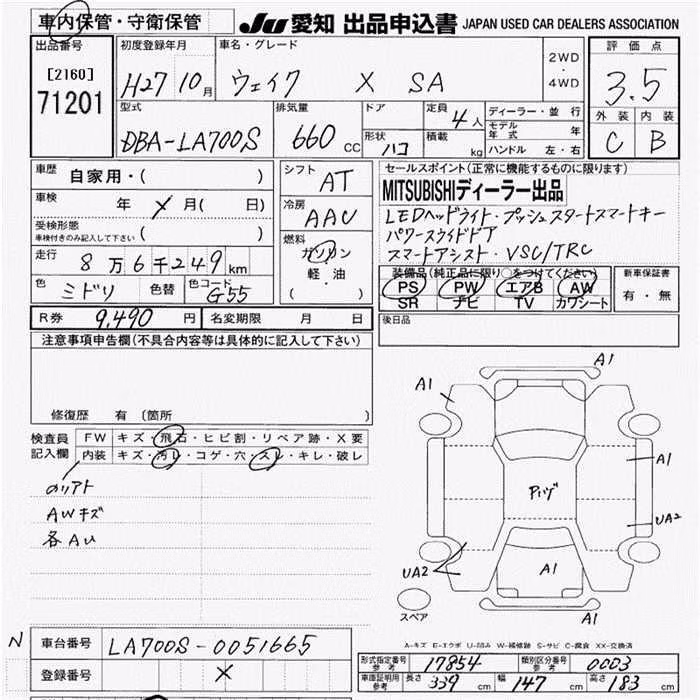 車内保管・守衛保管
JU 愛知 出品申込書 JAPAN USED CAR DEALERS ASSOCIATION
出品番号 初度登録年月 車名・グレード 評価点
[2160] H27 10月 ウェイク X SA 2WD・4WD 3.5
71201 型式 排気量 ドア 定員 4人 ディーラー・並行 外装 内装
モデル年式 年
DBA-LA700S 660 CC 形状 ハコ 積載 kg ハンドル 左・右 C B
車歴 自家用・( ) シフト AT セールスポイント(正常に機能するものに限ります)
車検 年 X 月( 日) 冷房 AAC MITSUBISHIディーラー出品
受検形態 車検付きのみ記入して下さい ( ) LEDヘッドライト・プッシュスタートスマートキー
燃料 パワースライドドア
走行 8万6千249km ガソリン スマートアシスト・VSC/TRC
軽油 装備品(純正品に限り○をつけてください) 新車保証書
色 ミドリ 色替 色コード G55 ( ・ ) PS PW エアB AW 有・無
SR ナビ TV カワシート
R券 9,490円 名変期限 月 日 後日品
注意事項申告欄(不具合内容等は具体的に記入して下さい)
修復歴 有 〔箇所 〕
検査員記入欄 FW キズ・飛石・ヒビ割・リペア跡・X要
内装 キズ・汚レ・コゲ・穴・スレ・キレ・破レ
AWキズ
各AU
A1
A1
A1
Pハゲ
UA2
UA2
A1
A1
スペア
A-キズ E-エクボ U-凹み W-補修跡 S-サビ C-腐食 XX-交換済
N 車台番号 LA700S-0051665
型式指定番号 参考 17854 類別区分番号 参考 0003
登録番号 X
車庫証明用 参考 長さ 339cm 幅 147cm 高さ 183cm